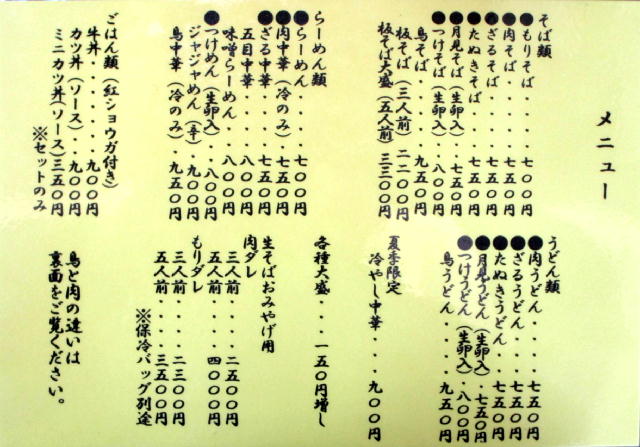 メニュー
そば類
●もりそば...七〇〇円
●肉そば....七五〇円
●ざるそば...七五〇円
●たぬきそば..七五〇円
●月見そば(生卵入)..七五〇円
●つけそば(生卵入)..八〇〇円
鳥そば.....九五〇円
板そば(三人前)二二〇〇円
板そば大盛(五人前)三三〇〇円
うどん類
●肉うどん...七五〇円
●ざるうどん..七五〇円
●たぬきうどん.七五〇円
●月見うどん(生卵入).七五〇円
●つけうどん(生卵入).八〇〇円
鳥うどん...九五〇円
夏季限定
冷やし中華...九〇〇円
らーめん類
●らーめん...七〇〇円
●肉中華(冷のみ).七五〇円
●ざる中華...七五〇円
五目中華...八〇〇円
味噌らーめん..八〇〇円
●つけめん(生卵入)..八〇〇円
ジャジャめん(辛).九〇〇円
鳥中華(冷のみ).九五〇円
各種大盛...一五〇円増し
生そばおみやげ用
肉ダレ
三人前...二五〇〇円
五人前...四〇〇〇円
もりダレ
三人前...二三〇〇円
五人前...三五〇〇円
※保冷バッグ別途
ごはん類(紅ショウガ付き)
牛丼......九〇〇円
カツ丼(ソース)..九〇〇円
ミニカツ丼(ソース)三五〇円
※セットのみ
鳥と肉の違いは
裏面をご覧ください。